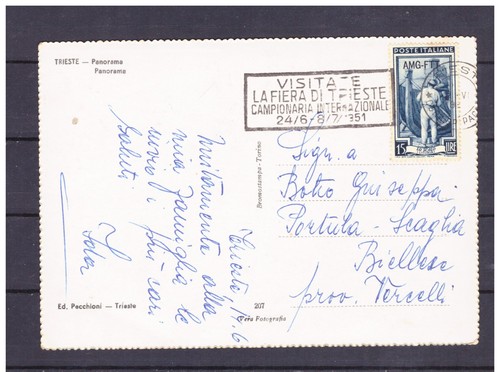 TRIESTE — Panorama
Panorama
VISITATE
LA FIERA DI TRIESTE
CAMPIONARIA INTERNAZIONALE
24/6-8/7/1951
POSTE ITALIANE
AMG-FTT
15 LIRE
TRIESTE
Trieste, 16.6
Unitamente alla
mia famiglia le
invio i più cari
saluti
Sig.a
Botto Giuseppa
Portula - Scaglia
Biellese
prov. Vercelli
Bromostampa - Torino
Ed. Pecchioni — Trieste
207
Vera Fotografia